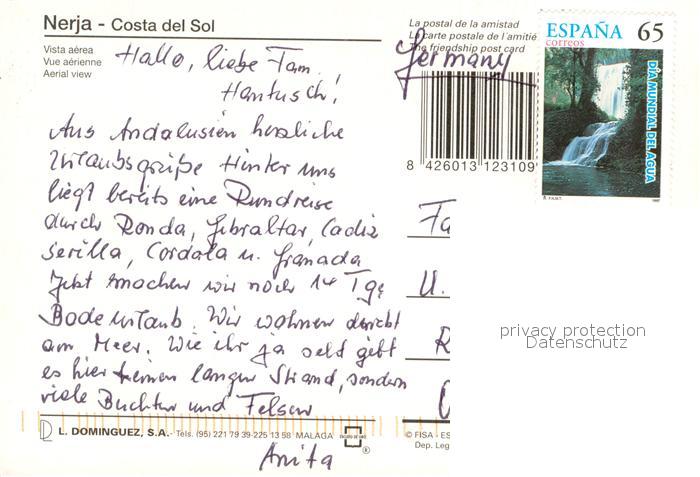 Nerja - Costa del Sol
Vista aérea
Vue aérienne
Aerial view
La postal de la amistad
La carte postale de l'amitié
The friendship post card
Germany
8 426013 123109
ESPAÑA 65
correos
DÍA MUNDIAL DEL AGUA
1997
Hallo, liebe Fam.
Hantusch!
Aus Andalusien herzliche
Urlaubsgrüße Hinter uns
liegt bereits eine Rundreise
durch Ronda, Gibraltar, Cadiz
Sevilla, Cordoba u. Granada
Jetzt machen wir noch 14 Tge
Badeurlaub. Wir wohnen direkt
am Meer. Wie ihr ja seht gibt
es hier keinen langen Strand, sondern
viele Buchten und Felsen
Anita
Fa
U.
R
privacy protection
Datenschutz
L. DOMINGUEZ, S.A. - Tels. (95) 221 79 39-225 13 58 MALAGA
© FISA - ES
Dep. Leg